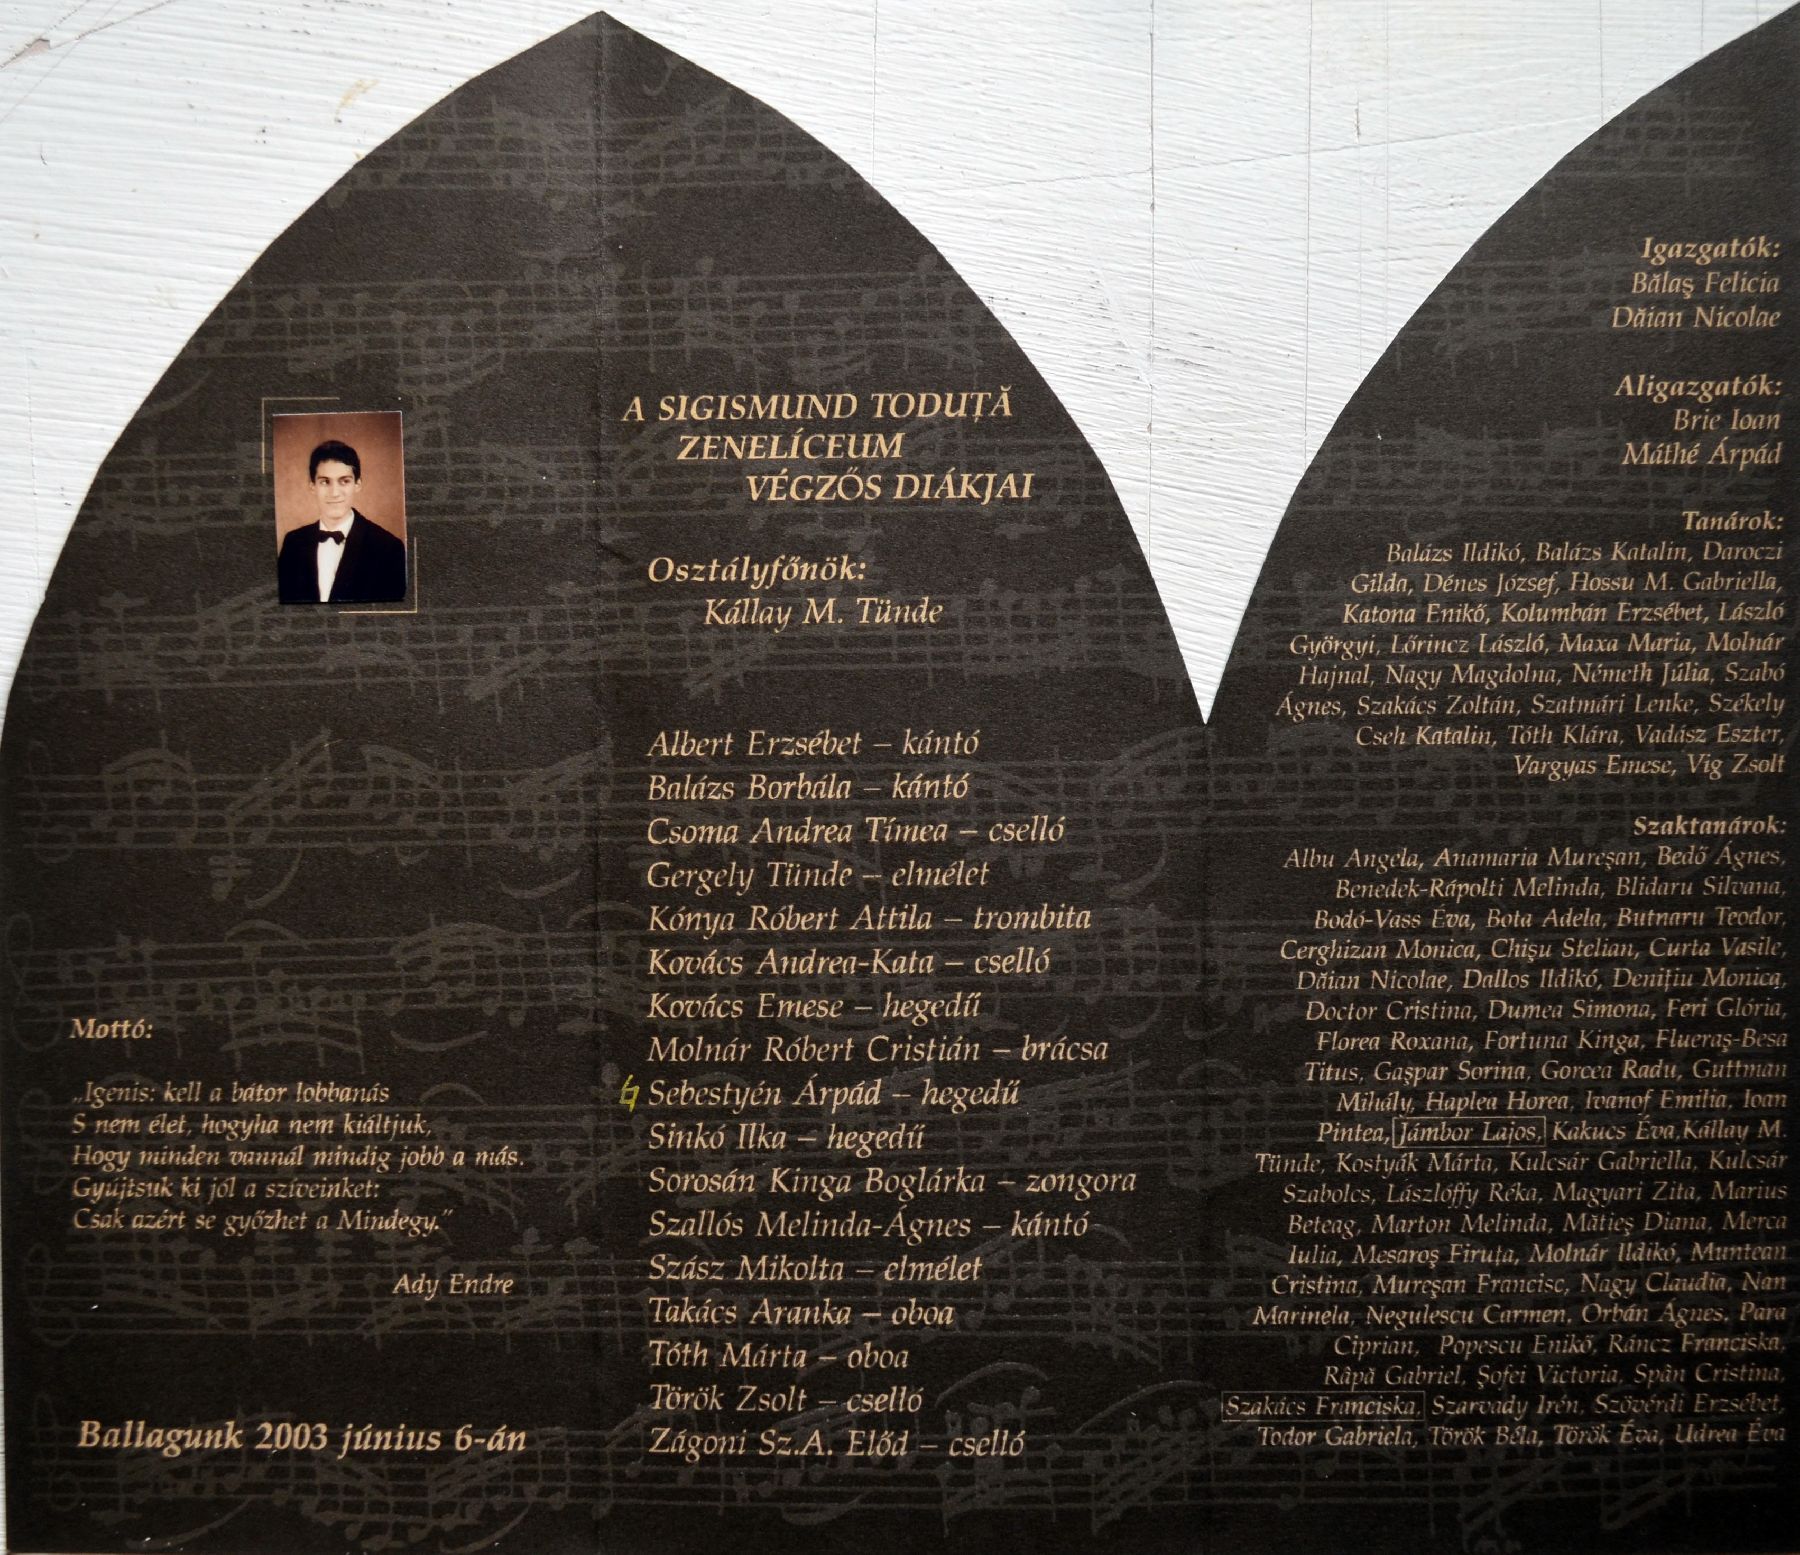 Mottó:
„Igenis: kell a bátor lobbanás
S nem élet, hogyha nem kiáltjuk,
Hogy minden vannál mindig jobb a más.
Gyújtsuk ki jól a szíveinket:
Csak azért se győzhet a Mindegy.”
Ady Endre
Ballagunk 2003 június 6-án
A SIGISMUND TODUȚĂ
ZENELÍCEUM
VÉGZŐS DIÁKJAI
Osztályfőnök:
Kállay M. Tünde
Albert Erzsébet – kántó
Balázs Borbála – kántó
Csoma Andrea Tímea – cselló
Gergely Tünde – elmélet
Kónya Róbert Attila – trombita
Kovács Andrea-Kata – cselló
Kovács Emese – hegedű
Molnár Róbert Cristián – brácsa
Sebestyén Árpád – hegedű
Sinkó Ilka – hegedű
Sorosán Kinga Boglárka – zongora
Szallós Melinda-Ágnes – kántó
Szász Mikolta – elmélet
Takács Aranka – oboa
Tóth Márta – oboa
Török Zsolt – cselló
Zágoni Sz.A. Előd – cselló
Igazgatók:
Bălaş Felicia
Dăian Nicolae
Aligazgatók:
Brie Ioan
Máthé Árpád
Tanárok:
Balázs Ildikó, Balázs Katalin, Daroczi
Gilda, Dénes József, Hossu M. Gabriella,
Katona Enikő, Kolumbán Erzsébet, László
Györgyi, Lőrincz László, Maxa Maria, Molnár
Hajnal, Nagy Magdolna, Németh Júlia, Szabó
Ágnes, Szakács Zoltán, Szatmári Lenke, Székely
Cseh Katalin, Tóth Klára, Vadász Eszter,
Vargyas Emese, Vig Zsolt
Szaktanárok:
Albu Angela, Anamaria Mureşan, Bedő Ágnes,
Benedek-Rápolti Melinda, Blidaru Silvana,
Bodó-Vass Éva, Bota Adela, Butnaru Teodor,
Cerghizan Monica, Chişu Stelian, Curta Vasile,
Dăian Nicolae, Dallos Ildikó, Deniţiu Monica,
Doctor Cristina, Dumea Simona, Feri Glória,
Florea Roxana, Fortuna Kinga, Flueraş-Besa
Titus, Gaşpar Sorina, Gorcea Radu, Guttman
Mihály, Haplea Horea, Ivanof Emilia, Ioan
Pintea, Jámbor Lajos, Kakucs Éva, Kállay M.
Tünde, Kostyák Márta, Kulcsár Gabriella, Kulcsár
Szabolcs, Lászlóffy Réka, Magyari Zita, Marius
Beteag, Marton Melinda, Mătieş Diana, Merca
Iulia, Mesaroş Firuţa, Molnár Ildikó, Muntean
Cristina, Mureşan Francisc, Nagy Claudia, Nan
Marinela, Negulescu Carmen, Orbán Ágnes, Para
Ciprian, Popescu Enikő, Ráncz Franciska,
Râpă Gabriel, Şofei Victoria, Spân Cristina,
Szakács Franciska, Szarvady Irén, Szövérdi Erzsébet,
Todor Gabriela, Török Béla, Török Éva, Udrea Éva